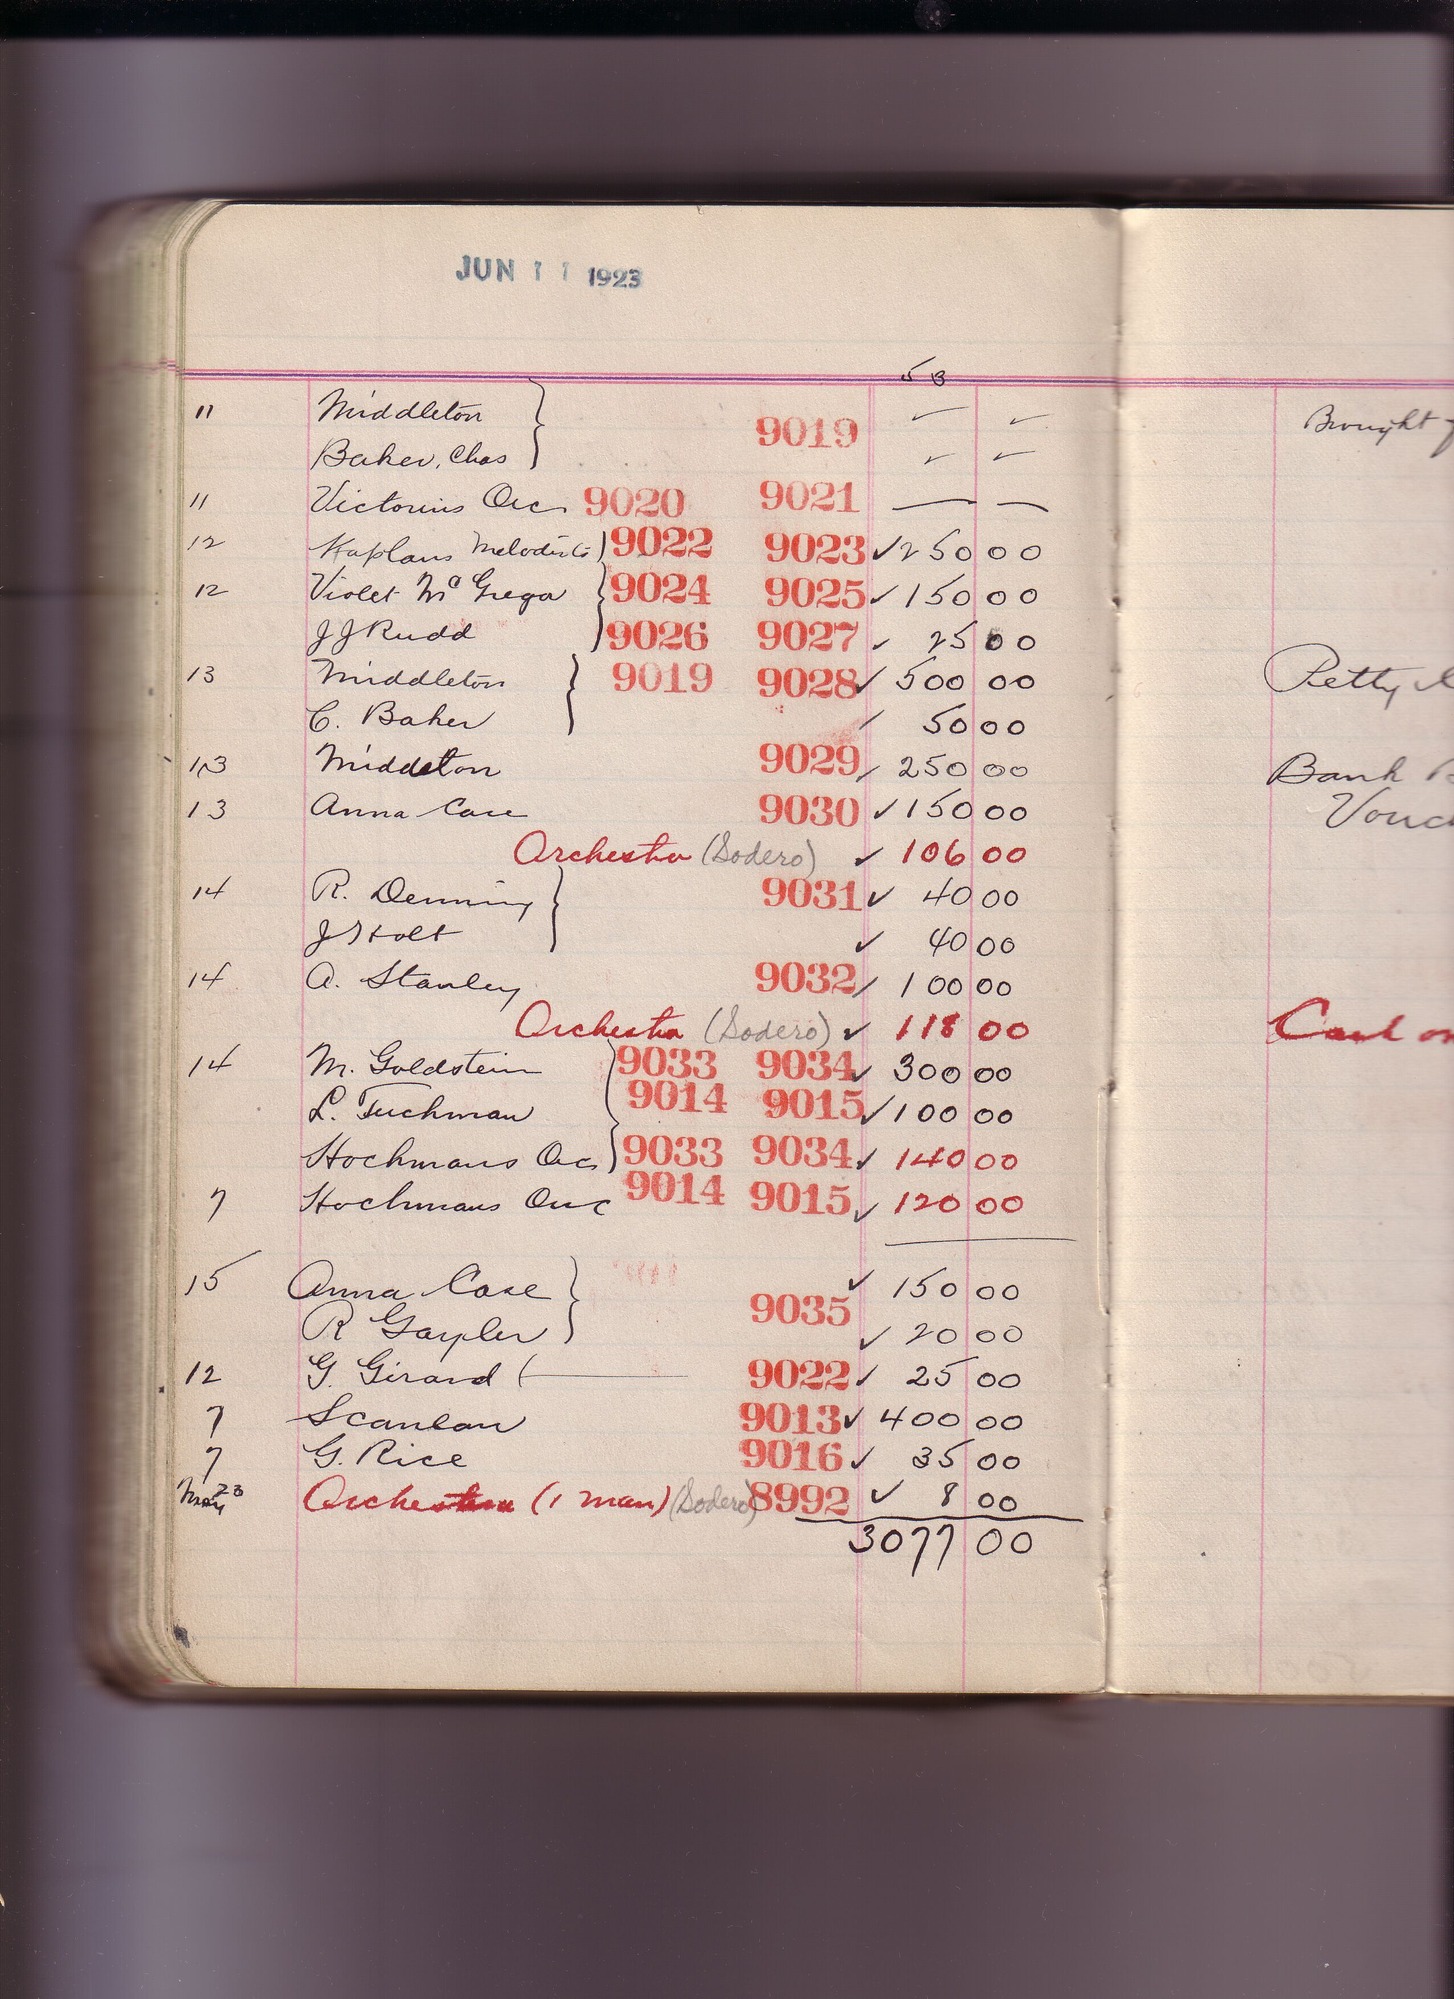 JUN 11 1923
53
11 Middleton 9019 ✓ ✓
Baker, Chas ✓ ✓
11 Victorins Orc. 9020 9021 — —
12 Kaplans Melodists 9022 9023 ✓ 250 00
12 Violet McGregor 9024 9025 ✓ 150 00
J J Rudd 9026 9027 ✓ 25 00
13 Middleton 9019 9028 ✓ 500 00
C. Baker ✓ 50 00
13 Middleton 9029 ✓ 250 00
13 Anna Case 9030 ✓ 150 00
Orchestra (Sodero) ✓ 106 00
14 R. Denning 9031 ✓ 40 00
J Holt ✓ 40 00
14 A. Stanley 9032 ✓ 100 00
Orchestra (Sodero) ✓ 118 00
14 M. Goldstein 9033 9034 ✓ 300 00
L. Tuchman 9014 9015 ✓ 100 00
Hochmans Orc. 9033 9034 ✓ 140 00
7 Hochmans Orc 9014 9015 ✓ 120 00
15 Anna Case ✓ 150 00
R Gayler 9035 ✓ 20 00
12 G. Girard ( 9022 ✓ 25 00
7 Scanlan 9013 ✓ 400 00
7 G. Rice 9016 ✓ 35 00
May 23 Orchestra (1 man) (Sodero) 8992 ✓ 8 00
3077 00
Brought
Petty
Bank
Vouc
Cash on